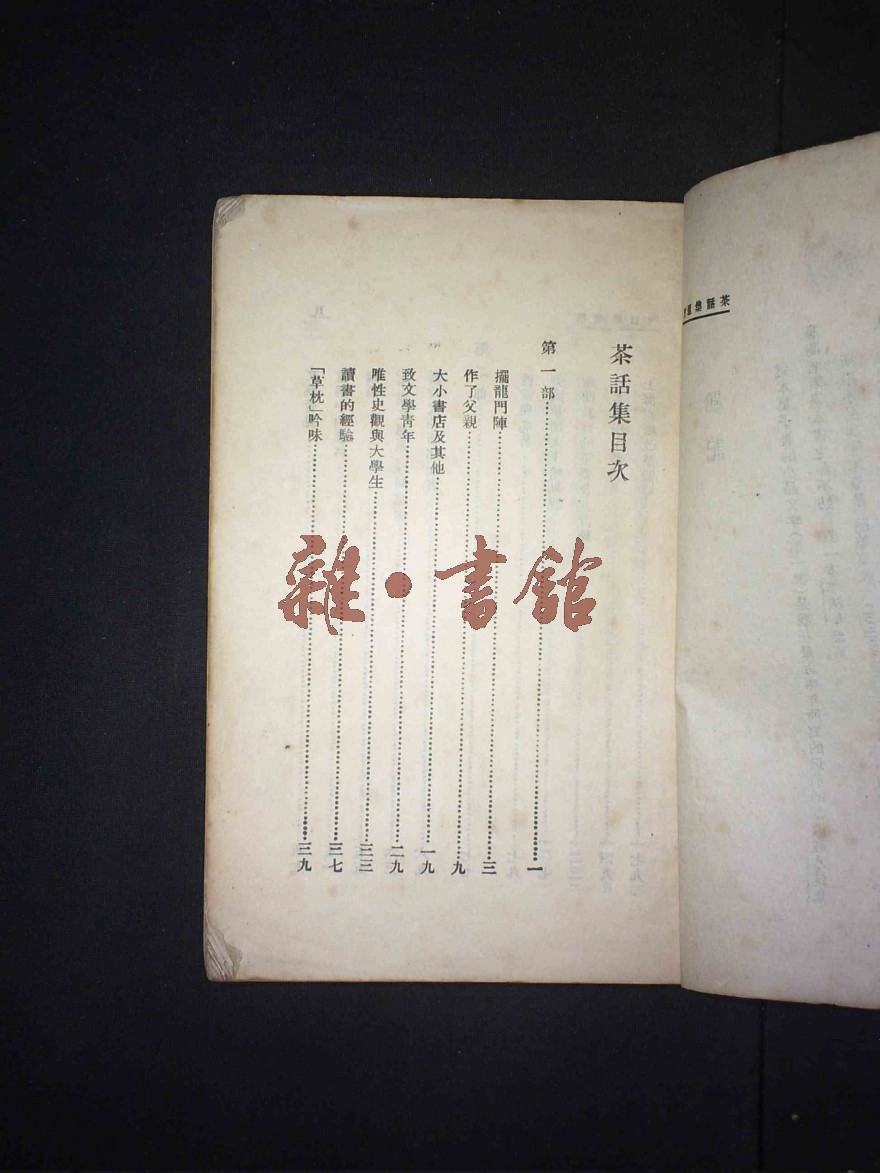 茶話集目次
第一部……一
擺龍門陣……三
作了父親……九
大小書店及其他……一九
致文學青年……二九
唯性史觀與大學生……三三
讀書的經驗……三七
「草枕」吟味……三九
雜·書館
茶話集